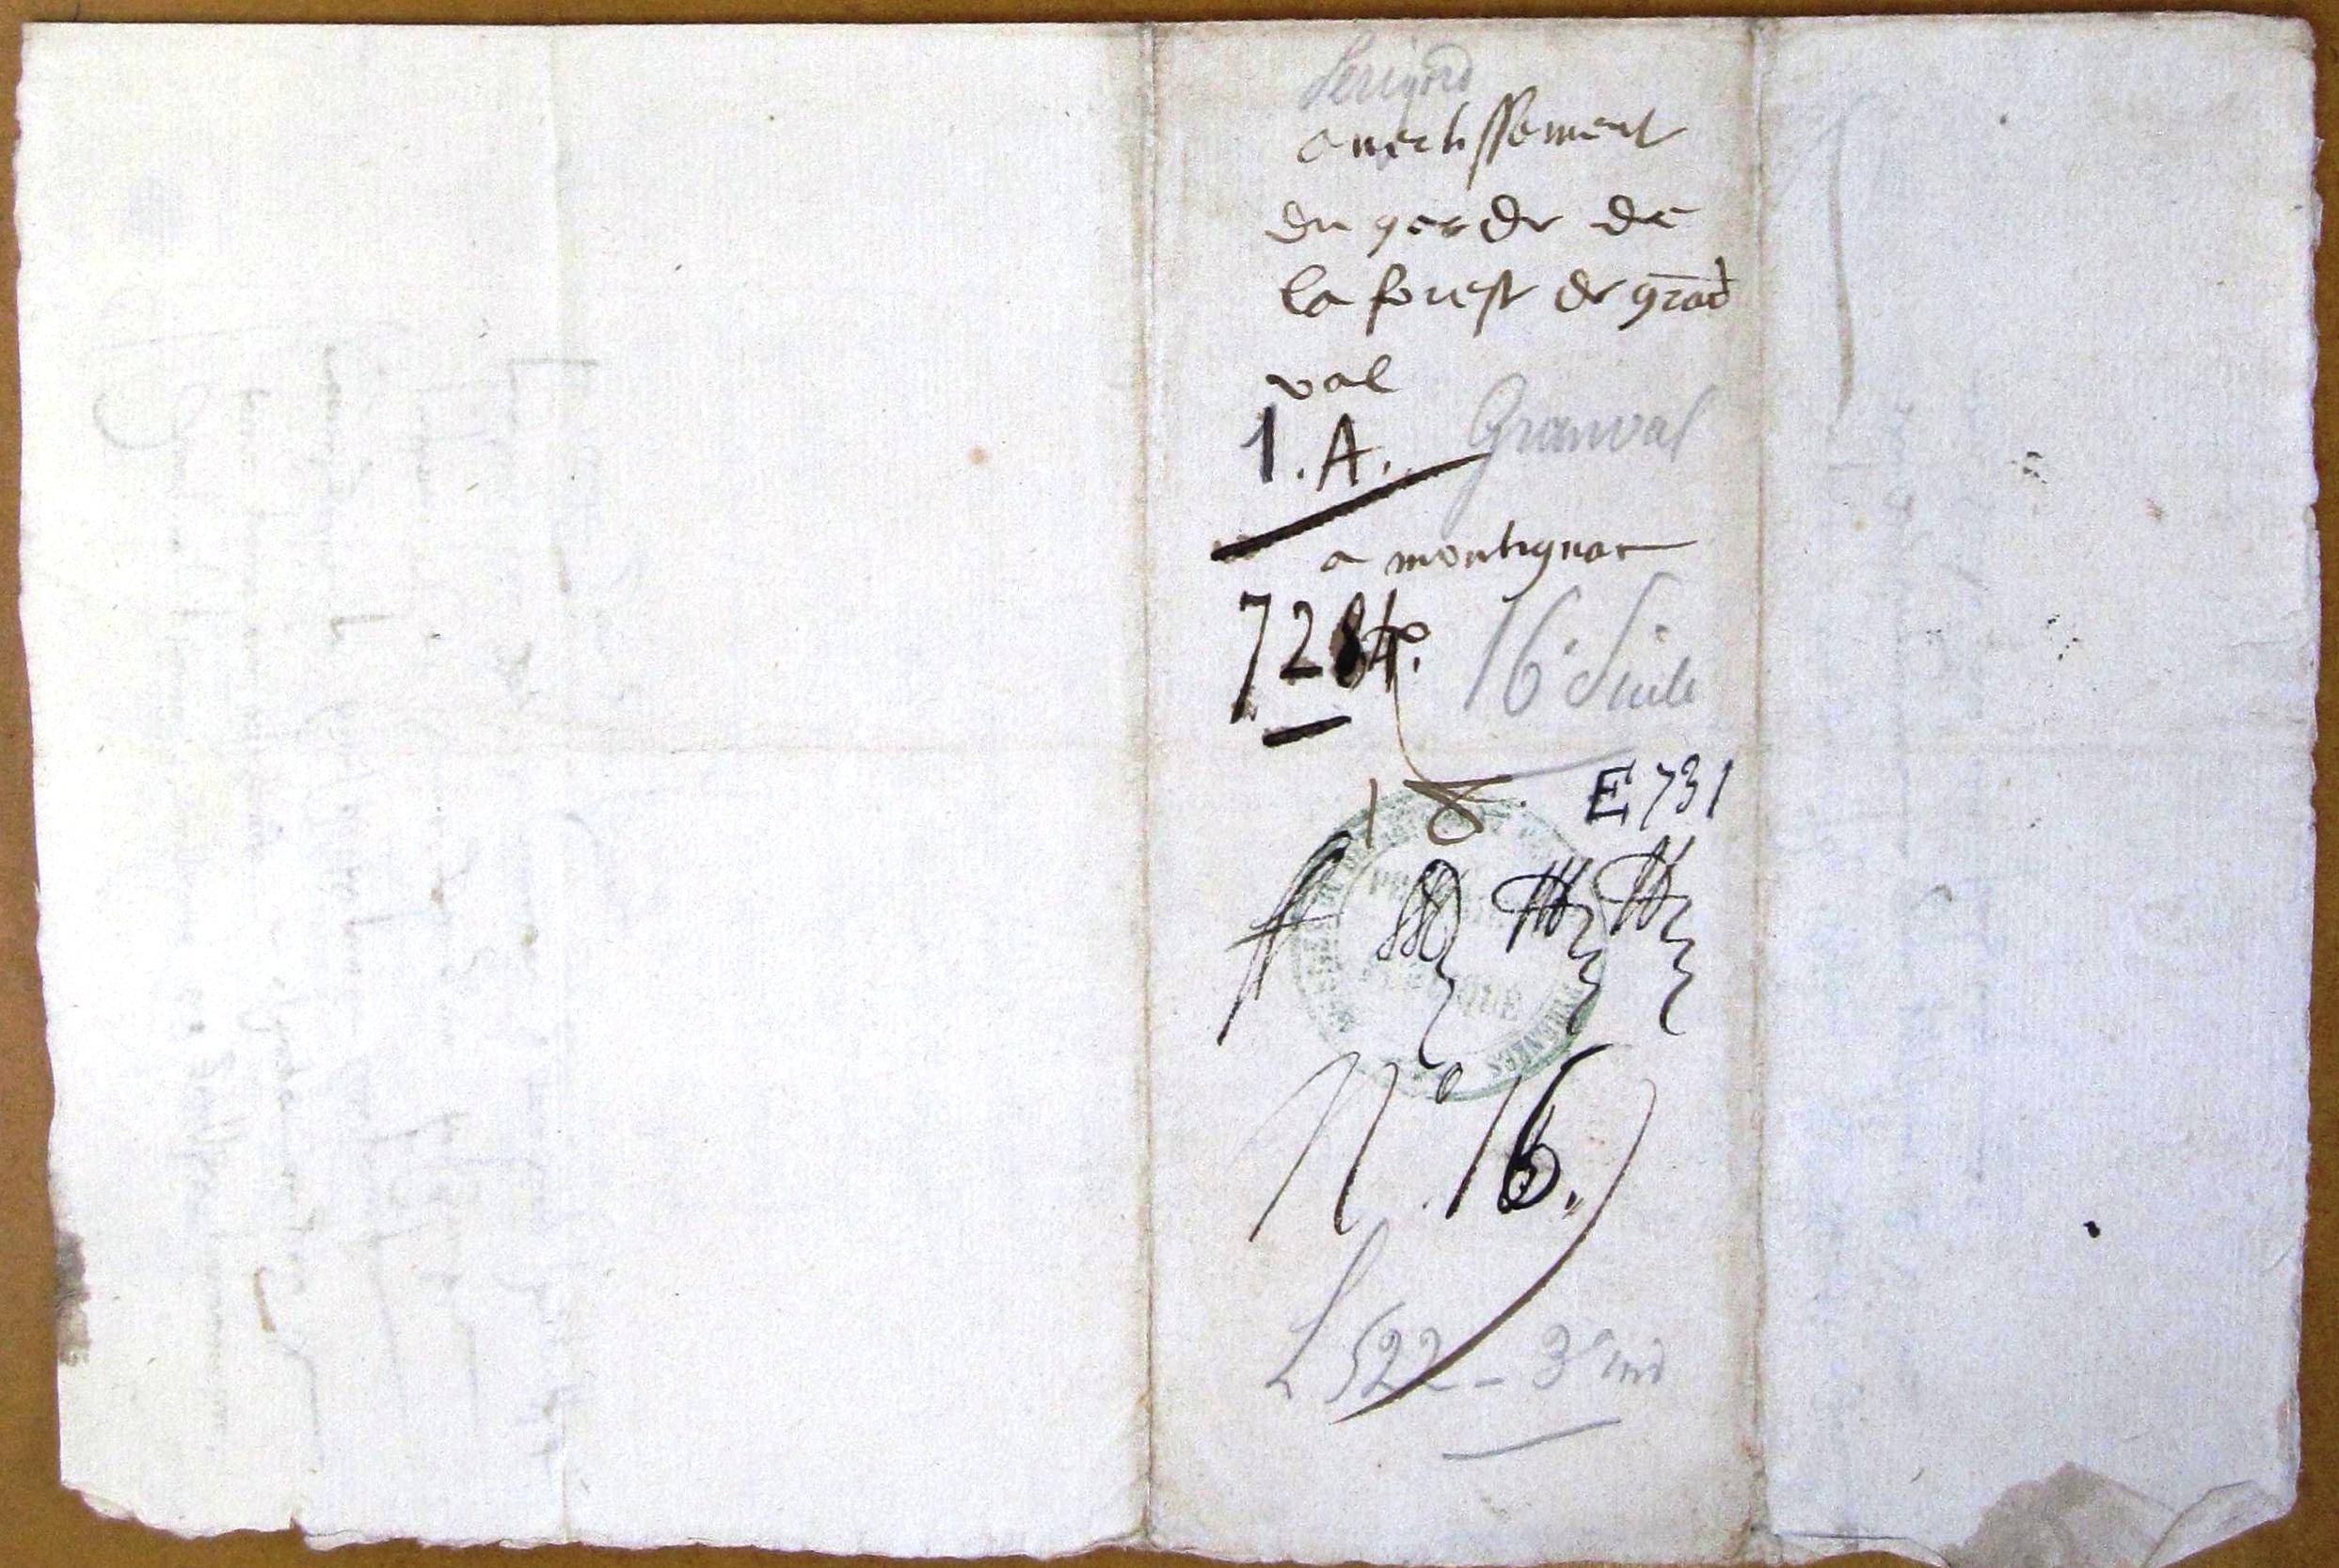 Perigord
avertissement
du gerde de
la forest de grād
val
1. A. Granval
a montignac
16e Siecle
18. E 731
N° 16.
L 522 - 3e ind